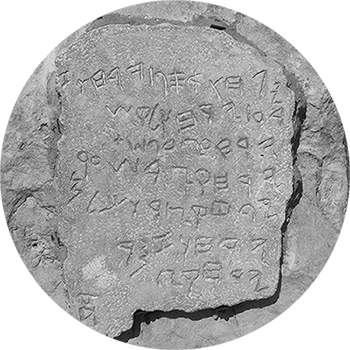 𐤉𐤓𐤇𐤅𐤀𐤎𐤐𐤉𐤓𐤇𐤅𐤆
𐤓𐤏𐤉𐤓𐤇𐤅𐤋𐤒𐤔
𐤉𐤓𐤇𐤏𐤑𐤃𐤐𐤔𐤕
𐤉𐤓𐤇𐤒𐤑𐤓𐤔𐤏𐤓𐤌
𐤉𐤓𐤇𐤒𐤑𐤓𐤅𐤊𐤋
𐤉𐤓𐤇𐤅𐤆𐤌𐤓
𐤉𐤓𐤇𐤒𐤑